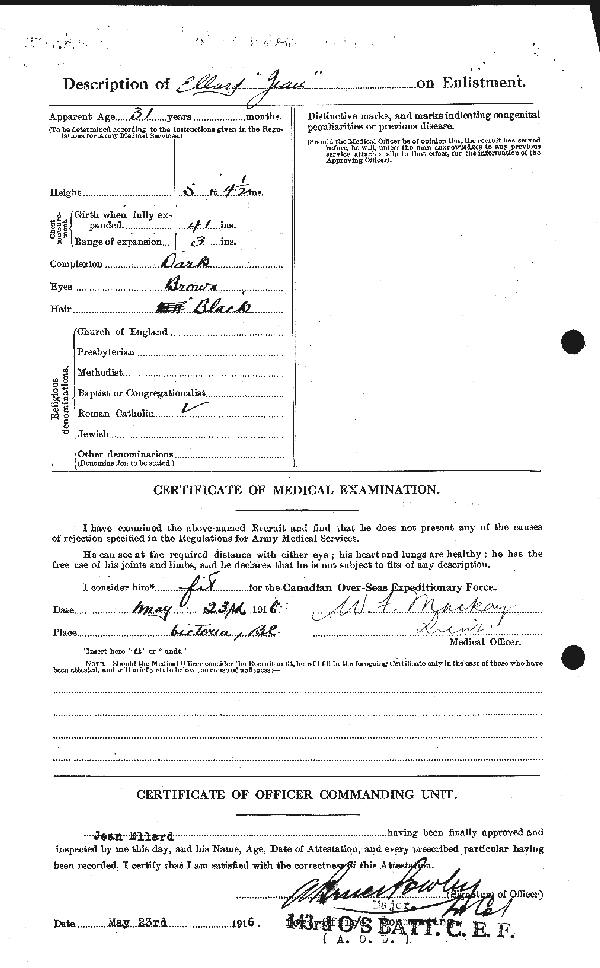 Description of Ellard "Jean" on Enlistment.
Apparent Age 31 years months.
(To be determined according to the instructions given in the Regulations for Army Medical Services.)
Height 5 ft 4½ ins.
Chest measurement
Girth when fully expanded 41 ins.
Range of expansion 3 ins.
Complexion Dark
Eyes Brown
Hair Black
Religious denominations.
Church of England
Presbyterian
Methodist
Baptist or Congregationalist
Roman Catholic ✓
Jewish
Other denominations
(Denomination to be stated.)
Distinctive marks, and marks indicating congenital
peculiarities or previous disease.
(Should the Medical Officer be of opinion that the recruit has served
before, he will, unless the man acknowledges to any previous
service, attach a slip to that effect, for the information of the
Approving Officer).
CERTIFICATE OF MEDICAL EXAMINATION.
I have examined the above-named Recruit and find that he does not present any of the causes
of rejection specified in the Regulations for Army Medical Services.
He can see at the required distance with either eye; his heart and lungs are healthy; he has the
free use of his joints and limbs, and he declares that he is not subject to fits of any description.
I consider him* fit for the Canadian Over-Seas Expeditionary Force.
Date May 23rd 1916
Place Victoria, BC
Medical Officer.
*Insert here "fit" or "unfit."
NOTE. Should the Medical Officer consider the Recruit unfit, he will fill in the foregoing Certificate only in the case of those who have
been attested, and will briefly state below the cause of unfitness:—
CERTIFICATE OF OFFICER COMMANDING UNIT.
Jean Ellard having been finally approved and
inspected by me this day, and his Name, Age, Date of Attestation, and every prescribed particular having
been recorded, I certify that I am satisfied with the correctness of this Attestation.
(Signature of Officer)
Major
Date May 23rd 1916
143rd O/S BATT. C. E. F.